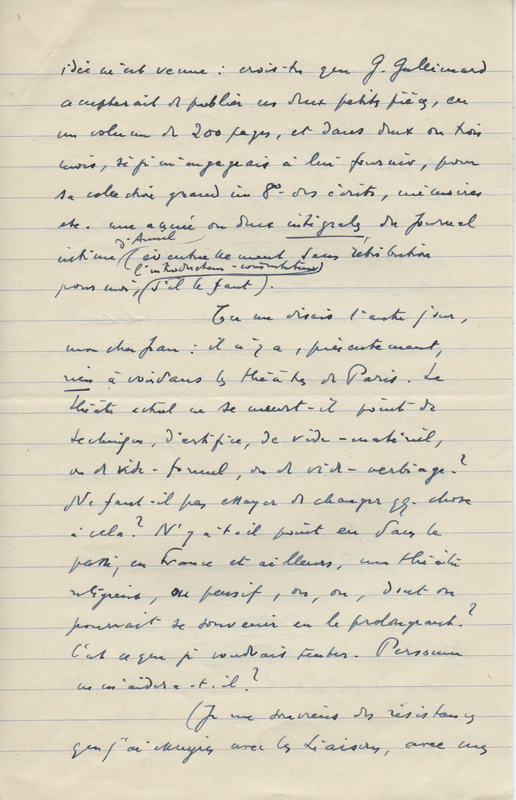 idée m'est venue : crois-tu que G. Gallimard
accepterait de publier ces deux petits pièces, en
un volume de 200 pages, et dans deux ou trois
mois, si je m'engageais à lui fournir, pour
sa collection grand in 8° des écrits, mémoires
etc. une année ou deux intégrales du Journal
d'Amiel
intime (éventuellement, sans rétribution
l'introducteur-commentateur
pour moi, (s'il le faut).
Tu me disais l'autre jour,
mon cher Jean : il n'y a, présentement,
rien à voir dans les théâtres de Paris. Le
théâtre actuel ne se meurt-il point de
technique, d'artifice, de vide-matériel,
ou de vide-formel, ou de vide-verbiage?
Ne faut-il pas essayer de changer qq. chose
à cela? N'y a-t-il point eu dans le
passé, en France et ailleurs, un théâtre
religieux, ou pensif, ou, ou, dont on
pourrait se souvenir en le prolongeant?
C'est ce que je voudrais tenter. Personne
ne m'aidera-t-il?
(Je me souviens des résistances
que j'ai essuyées avec les Liaisons, avec mes